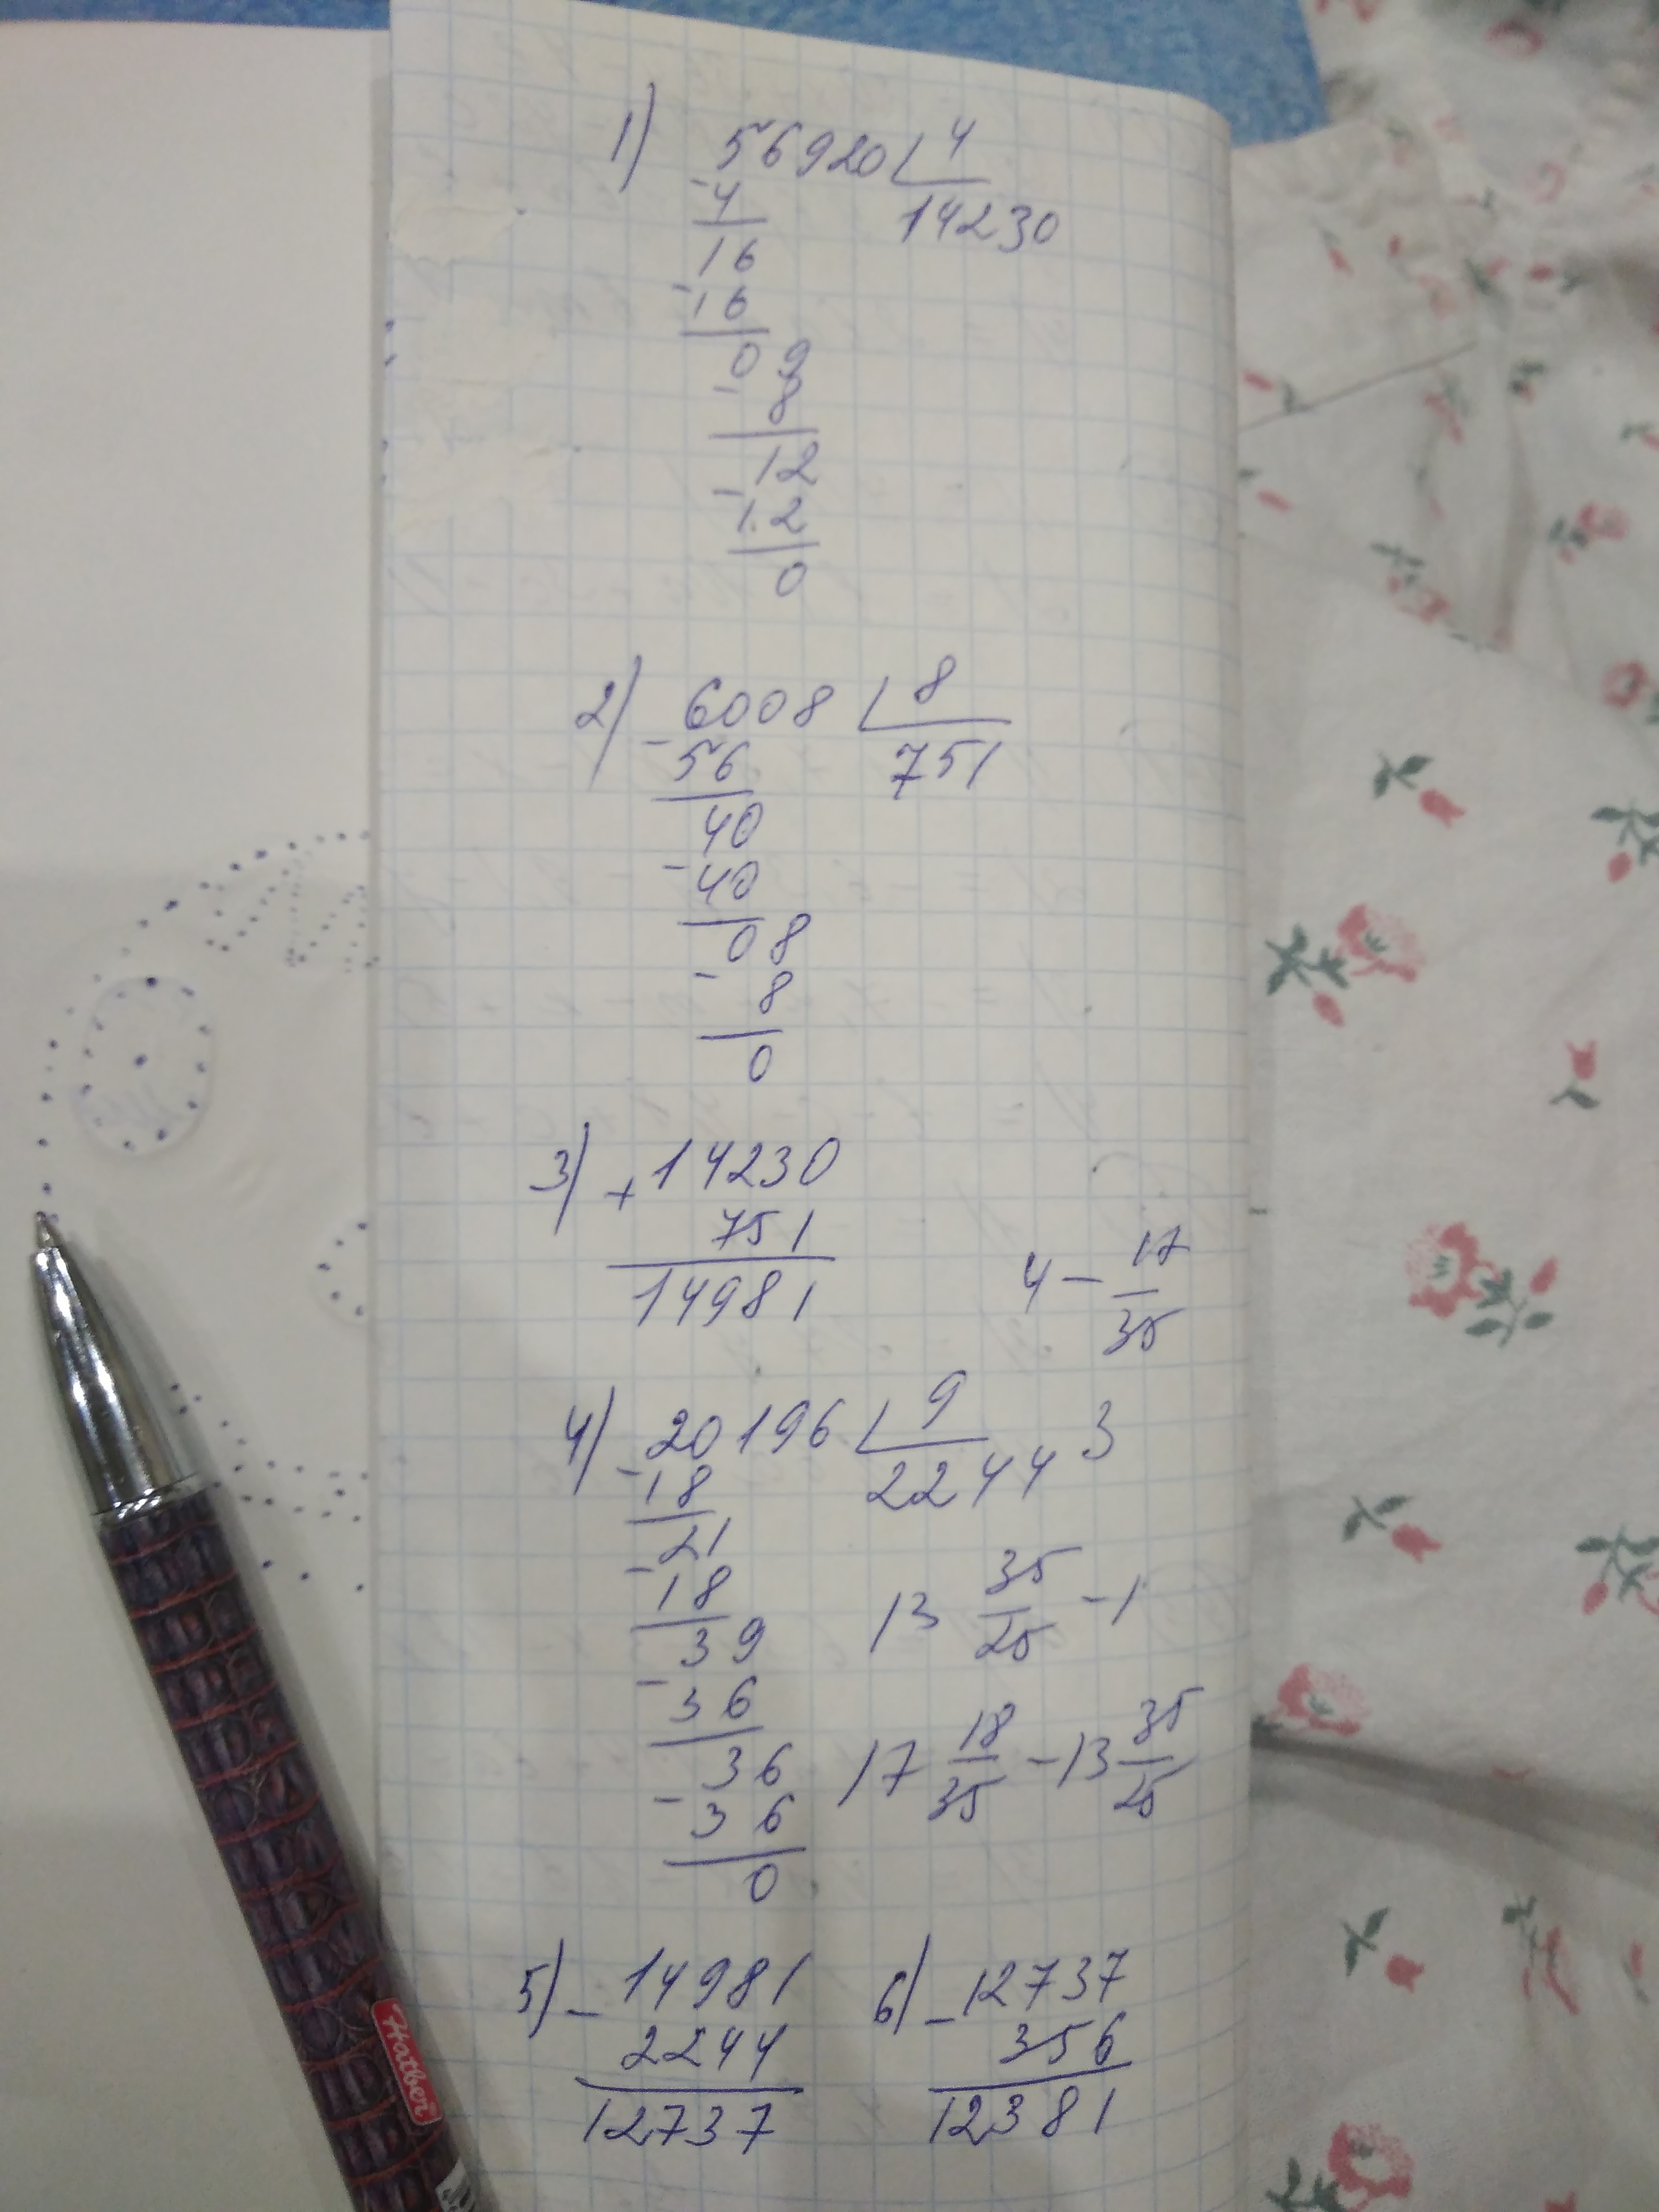 1) 56920 4
- 4 14230
16
- 16
09
- 8
12
- 12
0
2) 6008 8
- 56 751
40
- 40
08
- 8
0
3) + 14230
751
14981
4 - 17/35
4) 20196 9
- 18 2244
3
21
- 18
39
- 36
36
- 36
0
13 35/25 - 1
17 18/35 - 13 35/25
5) - 14981
2244
12737
6) - 12737
356
12381
Hatber